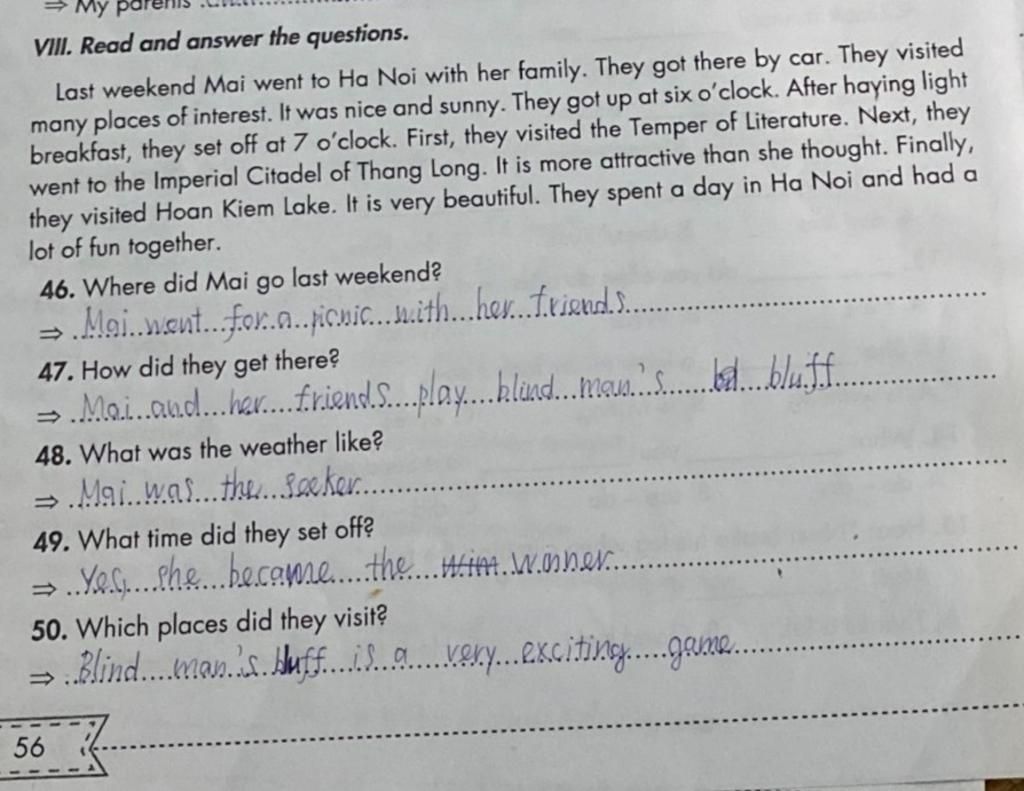 ⇒ My parents
VIII. Read and answer the questions.
Last weekend Mai went to Ha Noi with her family. They got there by car. They visited
many places of interest. It was nice and sunny. They got up at six o'clock. After haying light
breakfast, they set off at 7 o'clock. First, they visited the Temper of Literature. Next, they
went to the Imperial Citadel of Thang Long. It is more attractive than she thought. Finally,
they visited Hoan Kiem Lake. It is very beautiful. They spent a day in Ha Noi and had a
lot of fun together.
46. Where did Mai go last weekend?
⇒ Mai went for a picnic with her friends
47. How did they get there?
⇒ Mai and her friends play blind man's bluff
48. What was the weather like?
⇒ Mai was the seeker
49. What time did they set off?
⇒ Yes, she became the winner
50. Which places did they visit?
⇒ Blind man's bluff is a very exciting game
56